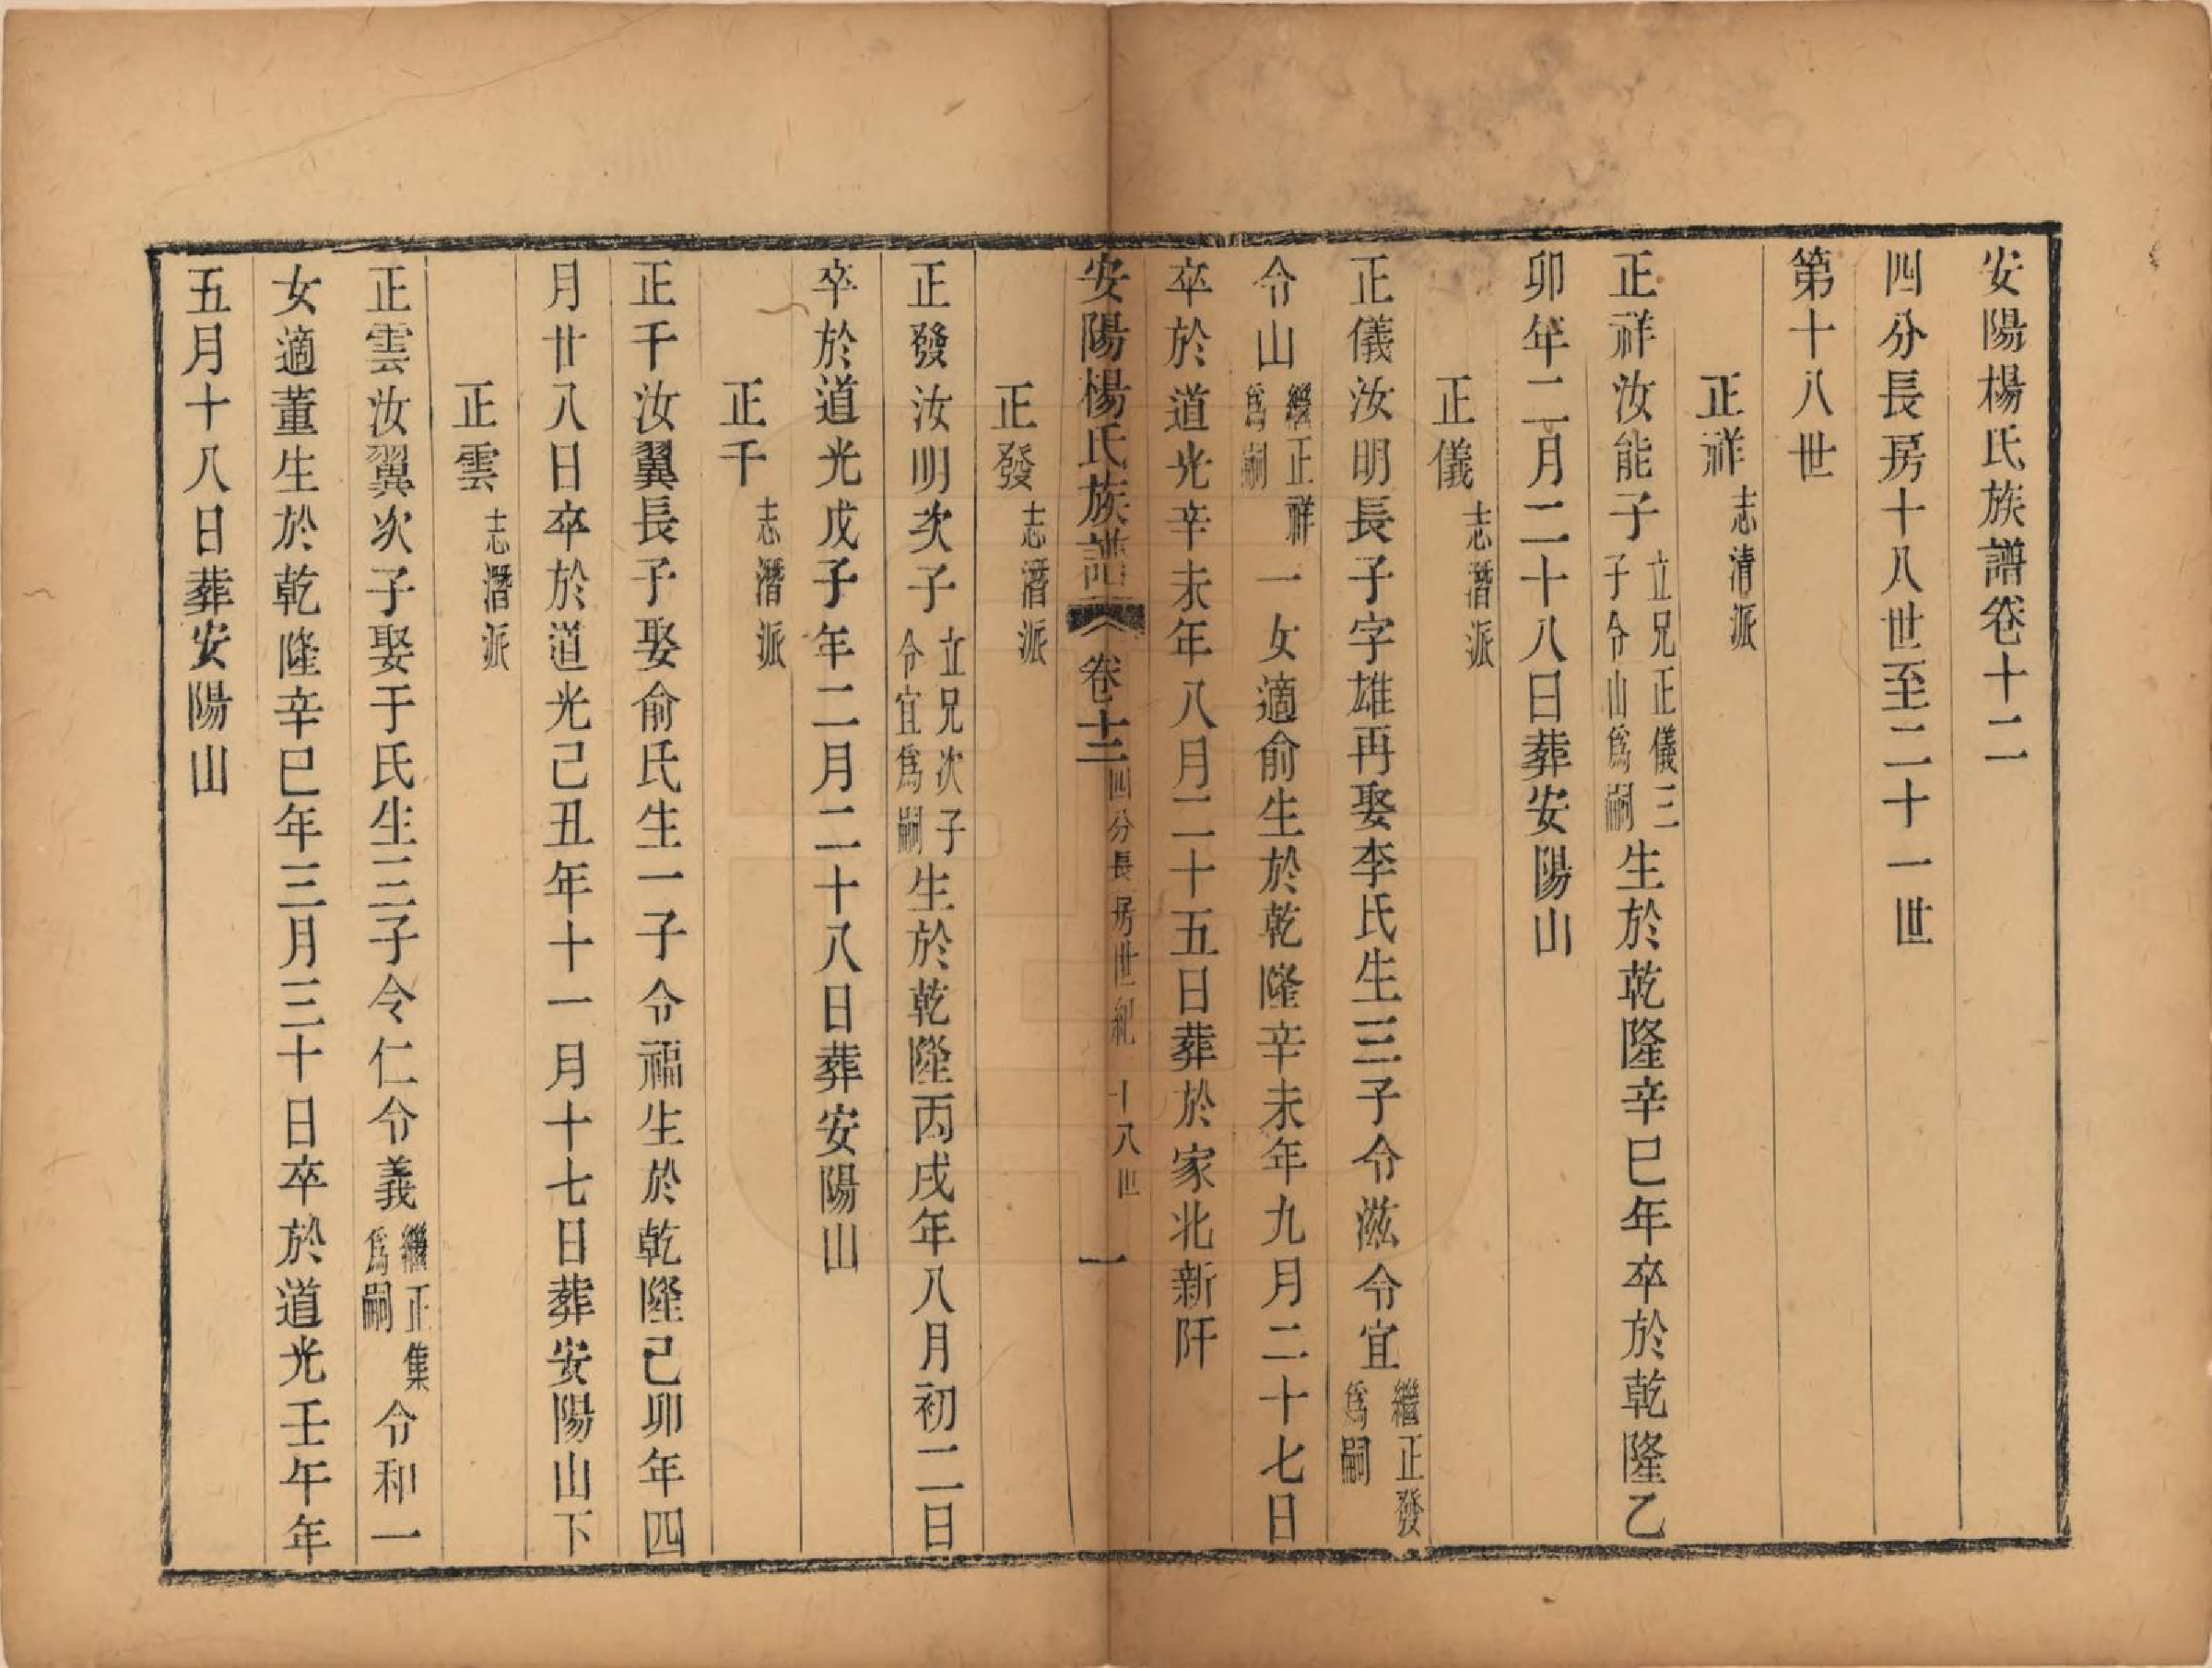 安陽楊氏族譜卷十二
四分長房十八世至二十一世
第十八世
正祥志清派
正祥汝能子立兄正儀三子令山爲嗣生於乾隆辛巳年卒於乾隆乙
卯年二月二十八日葬安陽山
正儀志潛派
正儀汝明長子字雄再娶李氏生三子令滋令宜繼正發爲嗣
令山繼正祥爲嗣一女適俞生於乾隆辛未年九月二十七日
卒於道光辛未年八月二十五日葬於家北新阡
安陽楊氏族譜 卷十二 四分長房世紀 十八世 一
正發志潛派
正發汝明次子立兄次子令宜爲嗣生於乾隆丙戌年八月初二日
卒於道光戊子年二月二十八日葬安陽山
正千志潛派
正千汝翼長子娶俞氏生一子令福生於乾隆己卯年四
月廿八日卒於道光己丑年十一月十七日葬安陽山下
正雲志潛派
正雲汝翼次子娶于氏生三子令仁令義繼正集爲嗣令和一
女適董生於乾隆辛巳年三月三十日卒於道光壬午年
五月十八日葬安陽山